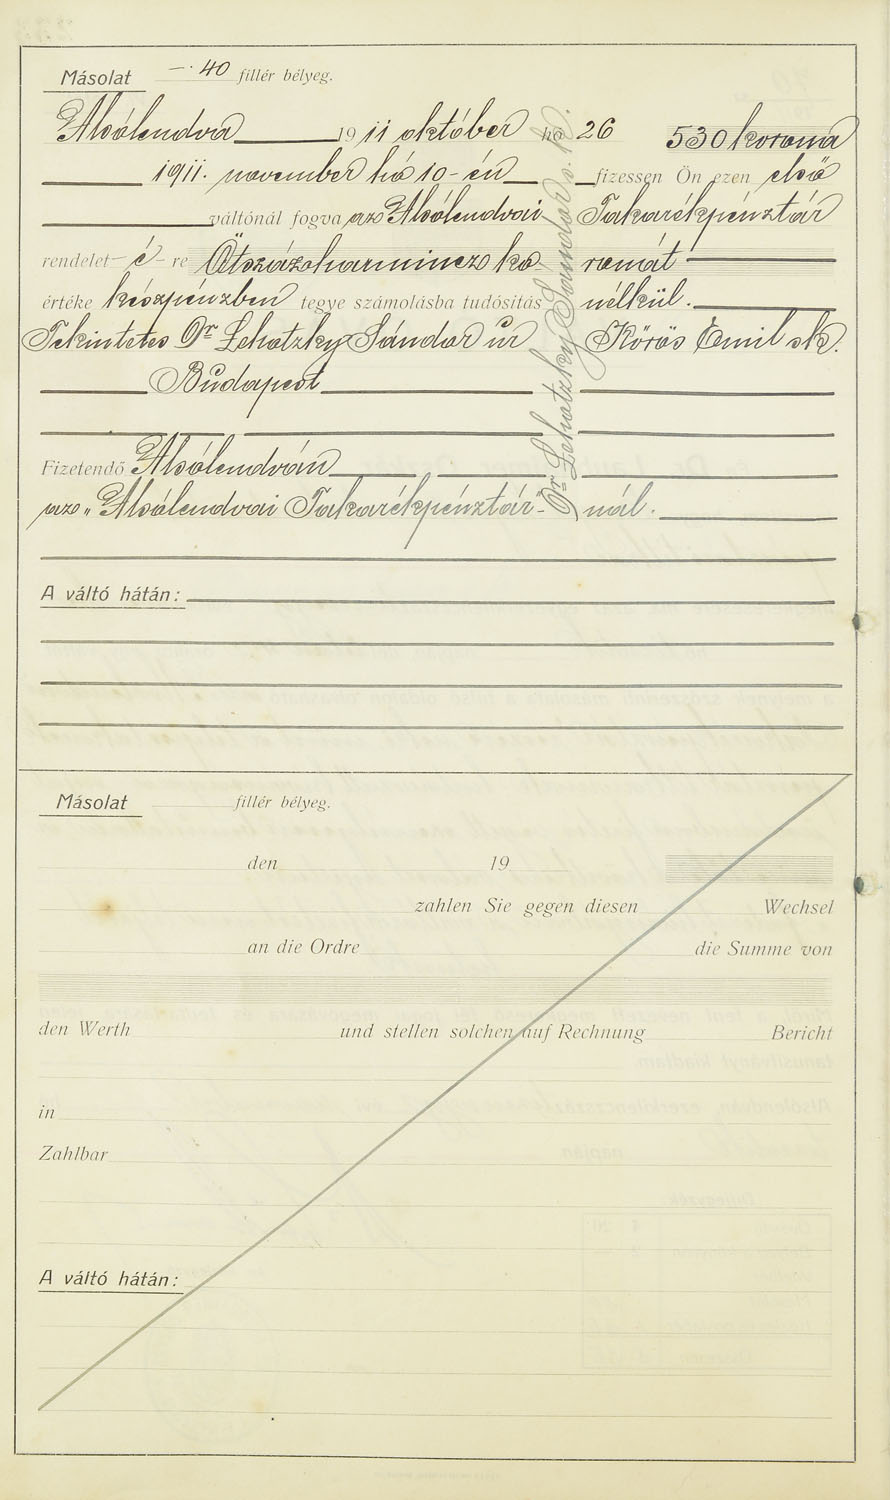 Másolat —·40 fillér bélyeg.
Alsólendva 1911 október hó 26 530 korona
1911. november hó 10-én fizessen Ön ezen első
váltónál fogva az Alsólendvai Takarékpénztár
rendelet-é-re Ötszázharmincz ko- ronát
értéke készpénzben tegye számolásba tudósítás nélkül.
Tekintetes Dr Lehatzky Sándor úr Kőrös Emil sk.
Budapest
Dr Lehatzky Sándor s. k.
Fizetendő Alsólendván
az „Alsólendvai Takarékpénztár"- nál.
A váltó hátán:
Másolat fillér bélyeg.
den 19
zahlen Sie gegen diesen Wechsel
an die Ordre die Summe von
den Werth und stellen solchen auf Rechnung Bericht
in
Zahlbar
A váltó hátán: